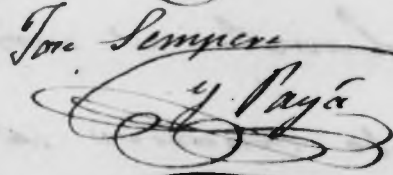 Jose Sempere
y Payá